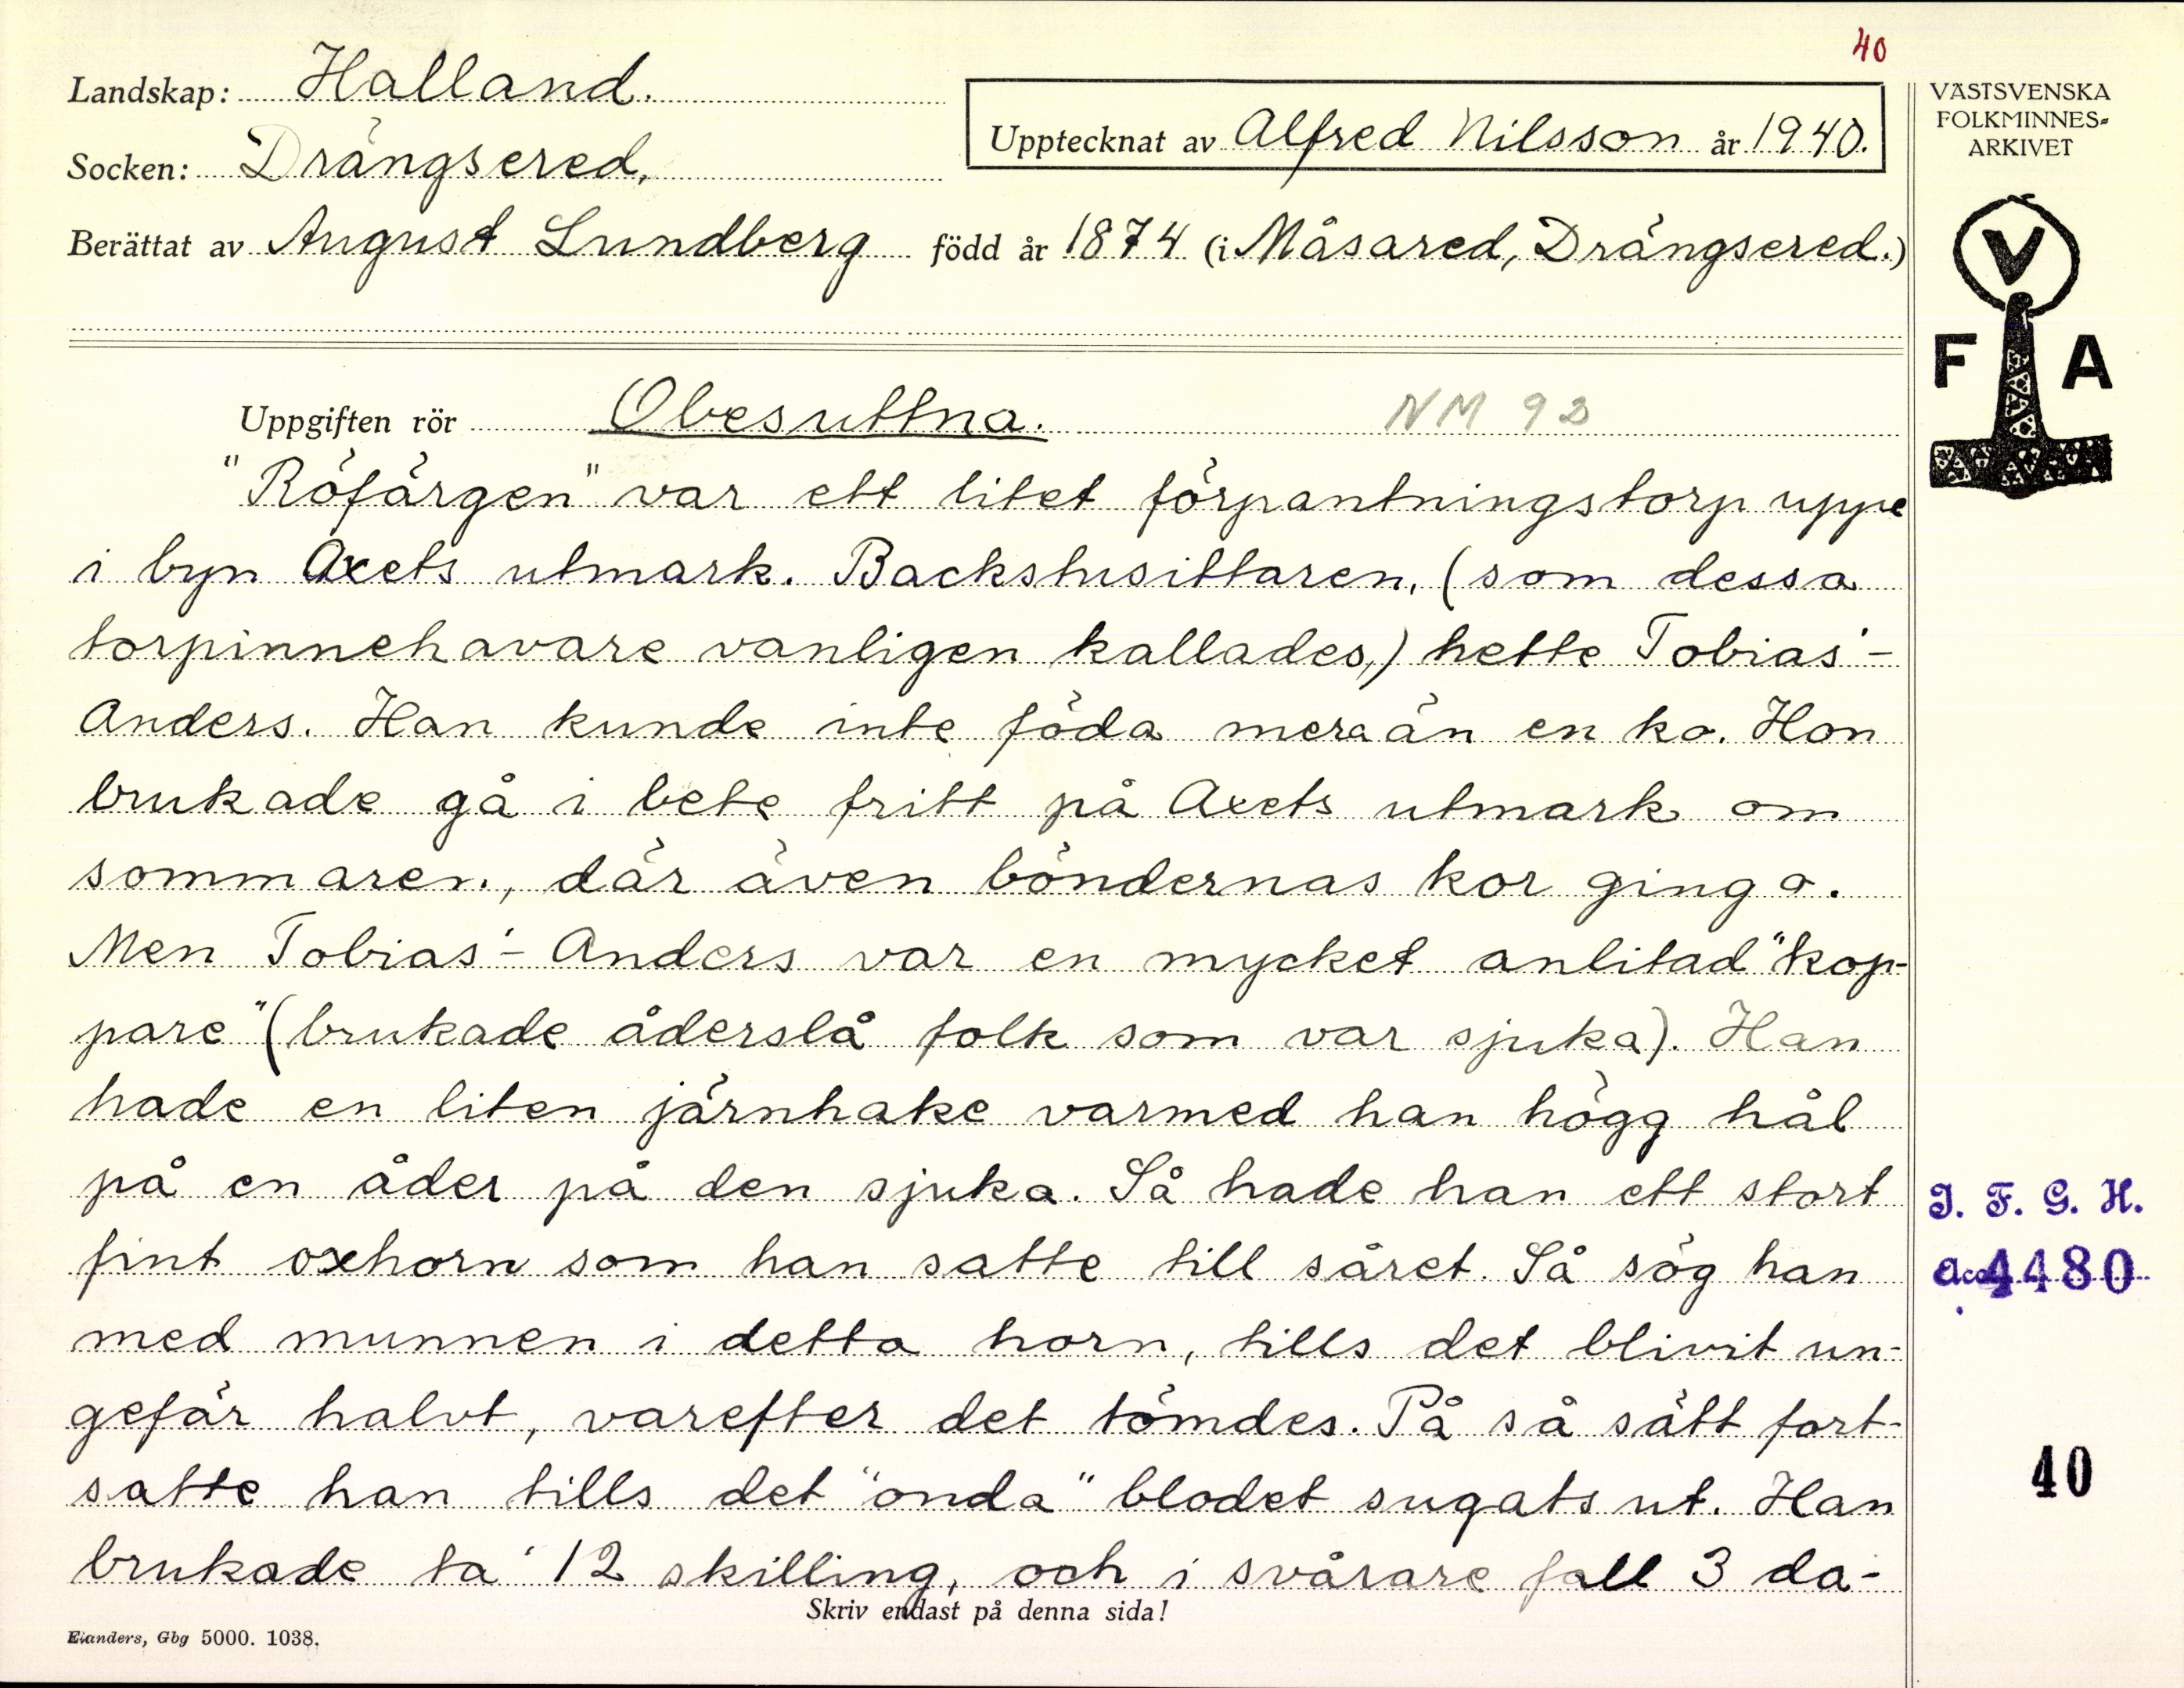 40
Landskap: Halland.
Socken: Drängsered.
Upptecknat av Alfred Nilsson år 1940.
Berättat av August Lundberg född år 1874 (i Måsared, Drängsered.)
VÄSTSVENSKA
FOLKMINNES-
ARKIVET
V
F A
Uppgiften rör Obesuttna. NM 92
"Röfärgen" var ett litet förpantningstorp uppe
i byn Axets utmark. Backstusittaren, (som dessa
torpinnehavare vanligen kallades,) hette Tobias'-
Anders. Han kunde inte föda mera än en ko. Hon
brukade gå i bete fritt på Axets utmark om
sommaren, där även böndernas kor gingo.
Men Tobias'- Anders var en mycket anlitad "kop-
pare" (brukade åderslå folk som var sjuka). Han
hade en liten järnhake varmed han högg hål
på en åder på den sjuka. Så hade han ett stort
fint oxhorn som han satte till såret. Så sög han
med munnen i detta horn, tills det blivit un-
gefär halvt, varefter det tömdes. På så sätt fort-
satte han tills det "onda" blodet sugats ut. Han
brukade ta' 12 skilling, och i svårare fall 3 da-
I. F. G. H.
Acc. 4480
40
Skriv endast på denna sida!
Elanders, Gbg 5000. 1038.